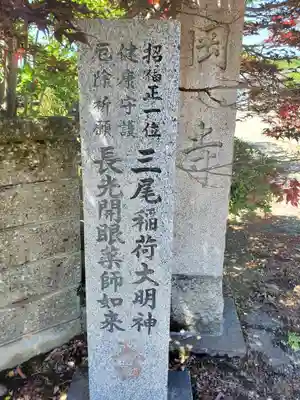 招福正一位
三尾稲荷大明神
健康守護
厄除祈願
長光開眼薬師如来
寺